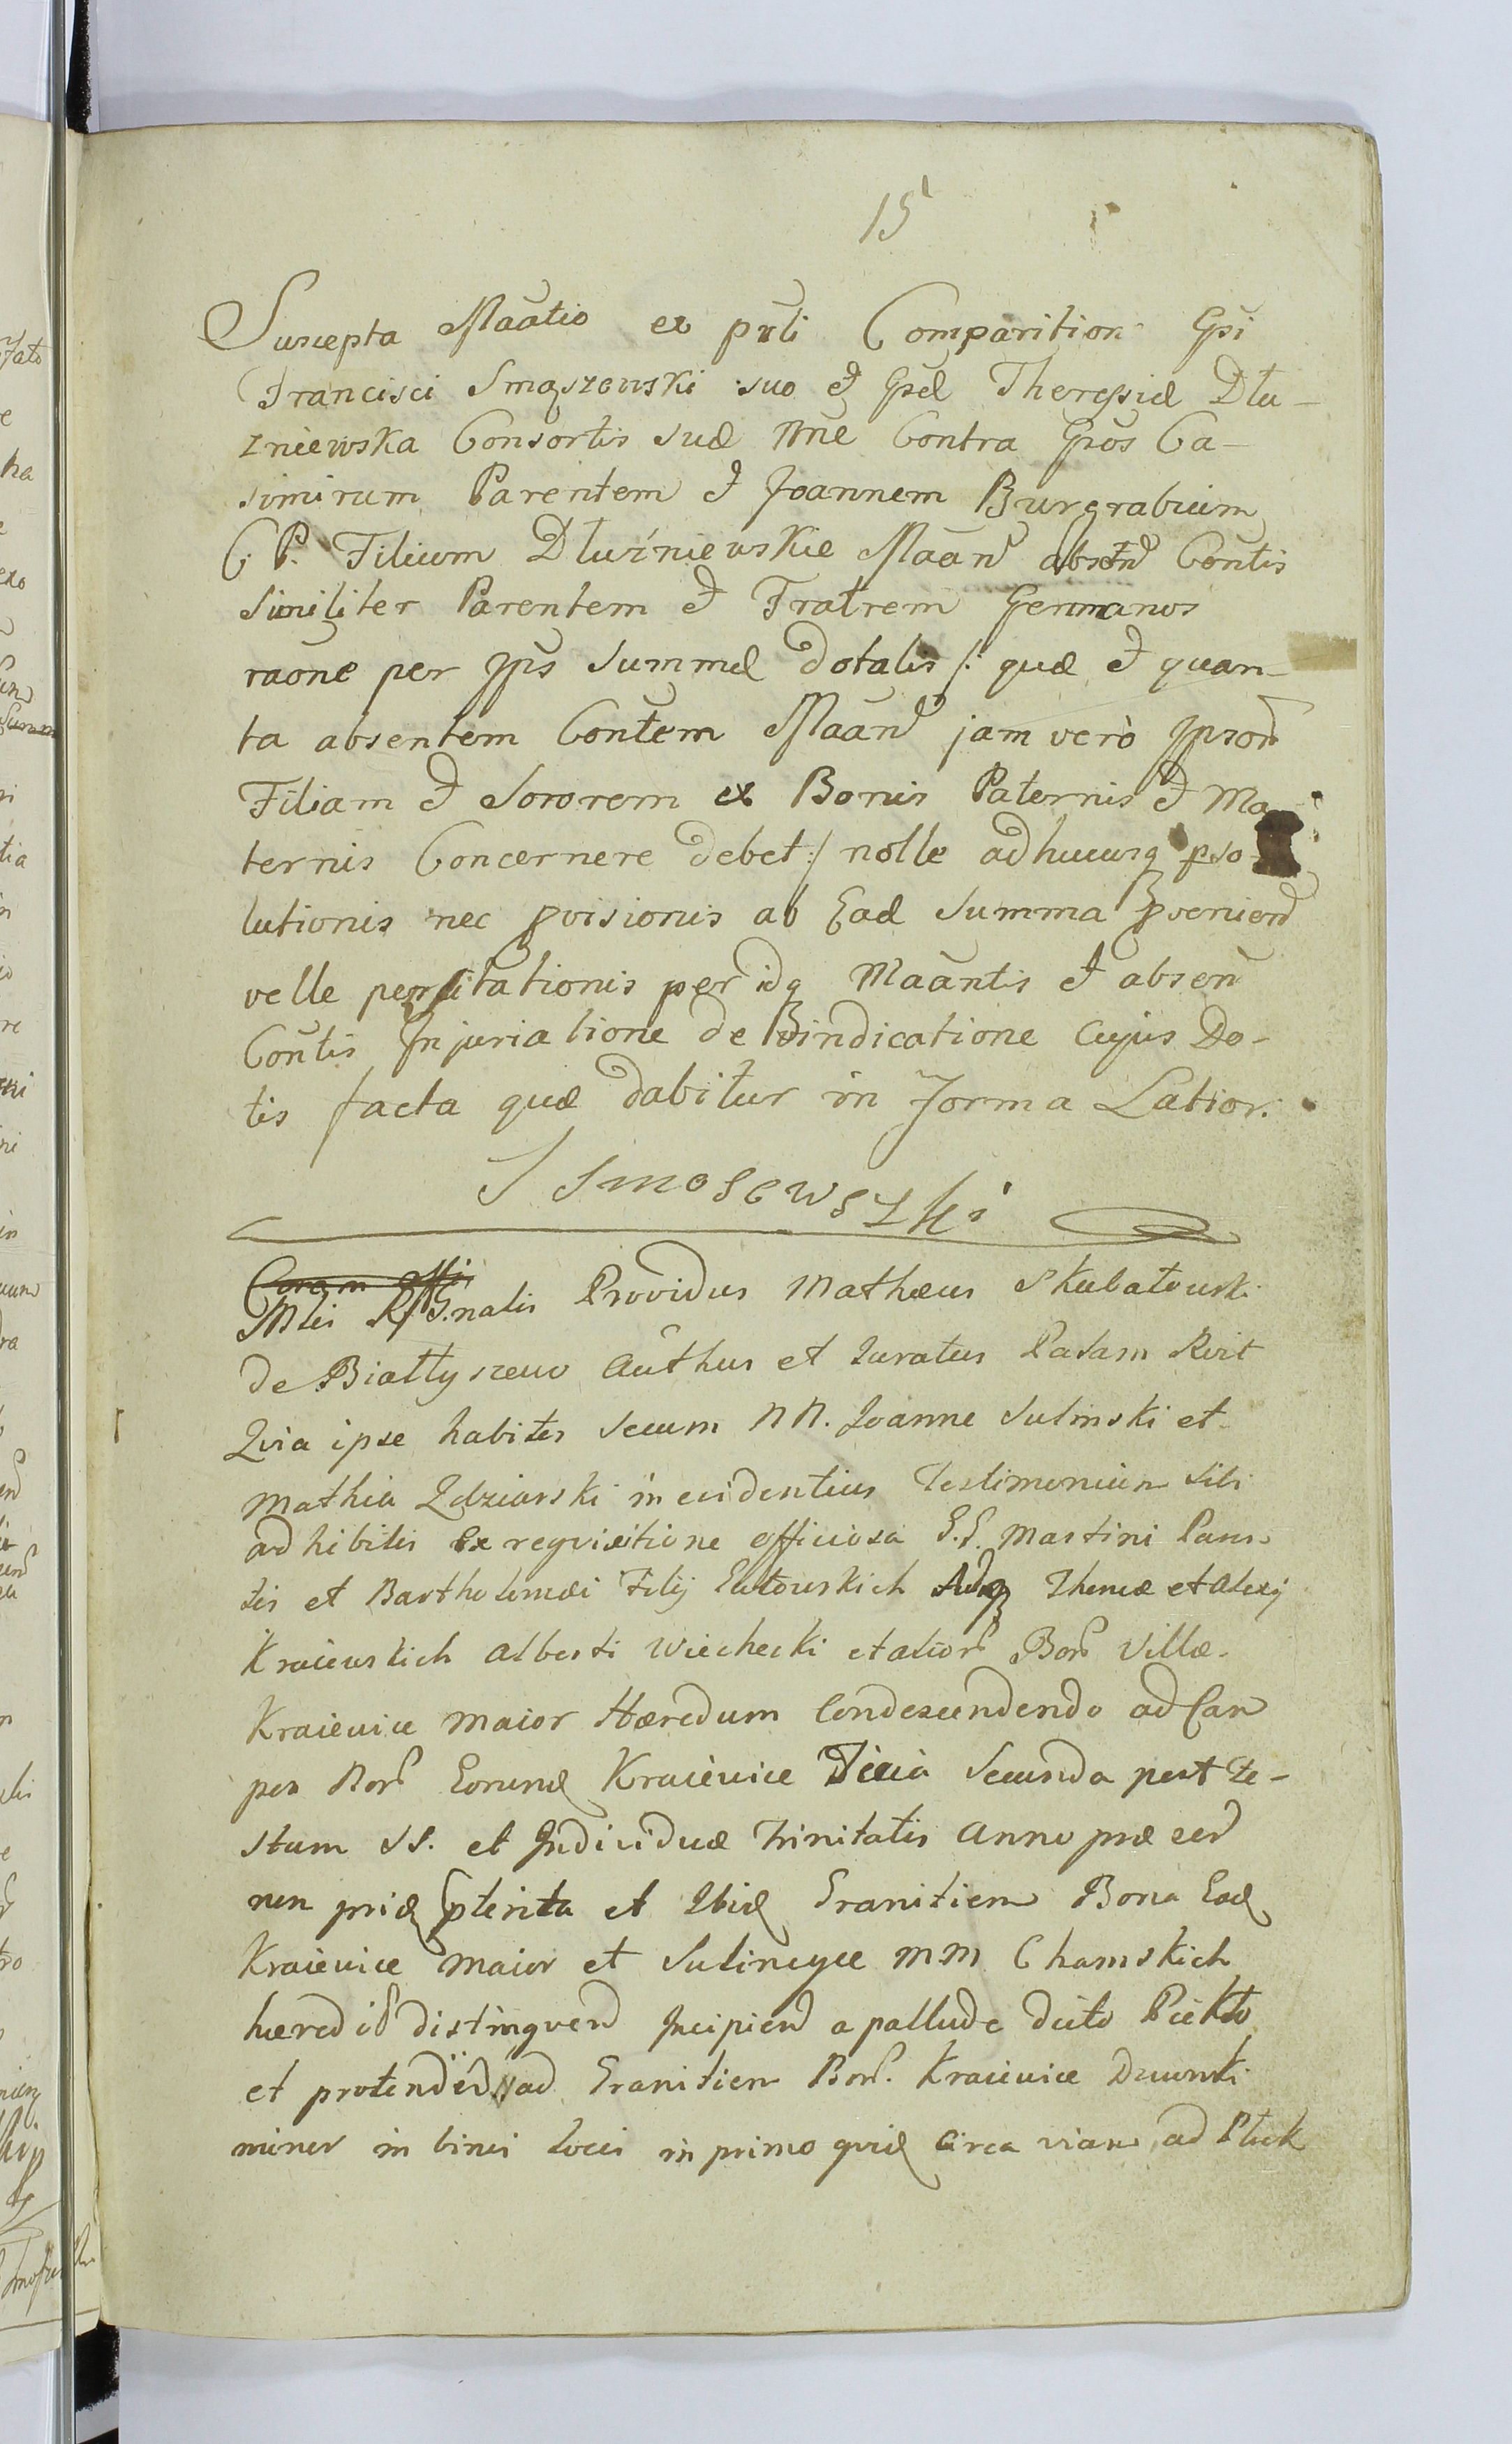 15
Suscepta Maãtio ex pñti Comparition Gsi
Francisci Smoszewski suo et Gsæ Theresiæ Dłu-
zniewska Consortis suæ nñe Contra Gsos Ca-
simirum Parentem et Joannem Burgrabium
C. P. Filium Dłużniewskie Maan absen Contis
Similiter Parentem et Fratrem Germanos
raõne per Ips Summæ dotalis /: quæ et quan-
ta absentem Contem Maan jam verò Ipsor
Filiam et Sororem ex Bonis Paternis et Ma
ternis Concernere debet :/ nolle adhucusq pso-
lutionis nec pvisionis ab Ead Summa pveniend
velle pensitationis per idq Maantis et absen
Contis Injuriatione de Vindicatione Cujus Do-
tis facta quæ dabitur in Forma Latior.
J Smosewszki
Coram Offi
Mlis Rgnalis Providus Mathæus Skubatowski
de Białłyszewo Authus et Juratus Palam Rvit
Quia ipse habitis Secum NN. Joanne Sulinski et
Mathia Zdziarski in evidentius Testimonium Sibi
adhibitis Ex reqvisitione officiosa G.G. Martini Paren
tis et Bartholomæi Filij Thomæ et Alexij
Kraiewskich Alberti Wiechecki et alior Bor Villæ
Kraiewice Maior Hæredum Condescendendo ad Cam
pos Bor Eorund Kraiewice Feria Secunda post Fe-
stum SS. et Individuæ Trinitatis Anno præsen
non prid pterita et Ibid Graniciem Bona Ead
Kraiewice Maior et Sulincyce MM Chamskich
hæred distingvend Incipiend a pallude dicto Piekło
et protendend ad Graniciem Bor. Kraiewice Dwurski
minor in binis locis in primo qvid Circa viam ad Płock